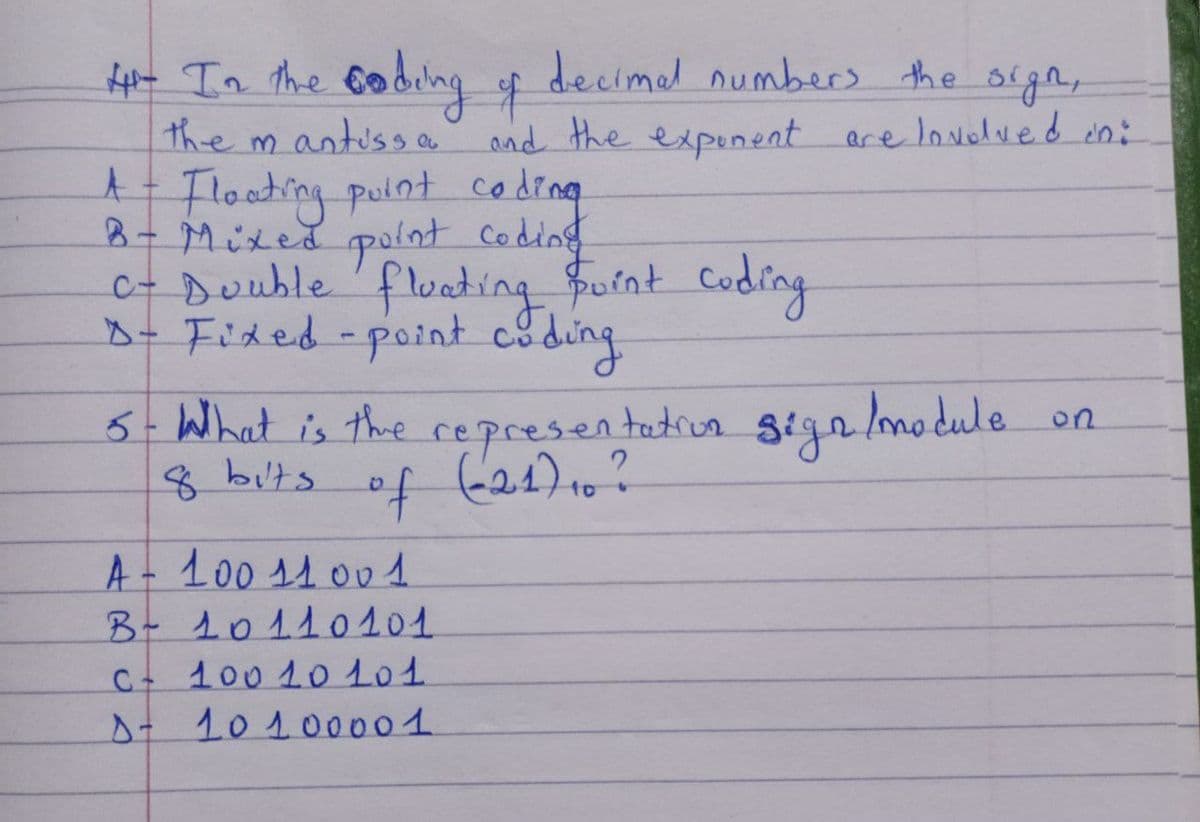 4- In the coding of decimal numbers the sign,
the mantissa and the exponent are Involved in:
A- Floating point coding
B- Mixed point coding
C- Double floating point coding
D- Fixed-point coding
5- What is the representation sign/module on
8 bits of (-21)10 ?
A- 10011001
B- 10110101
C- 10010101
D- 10100001